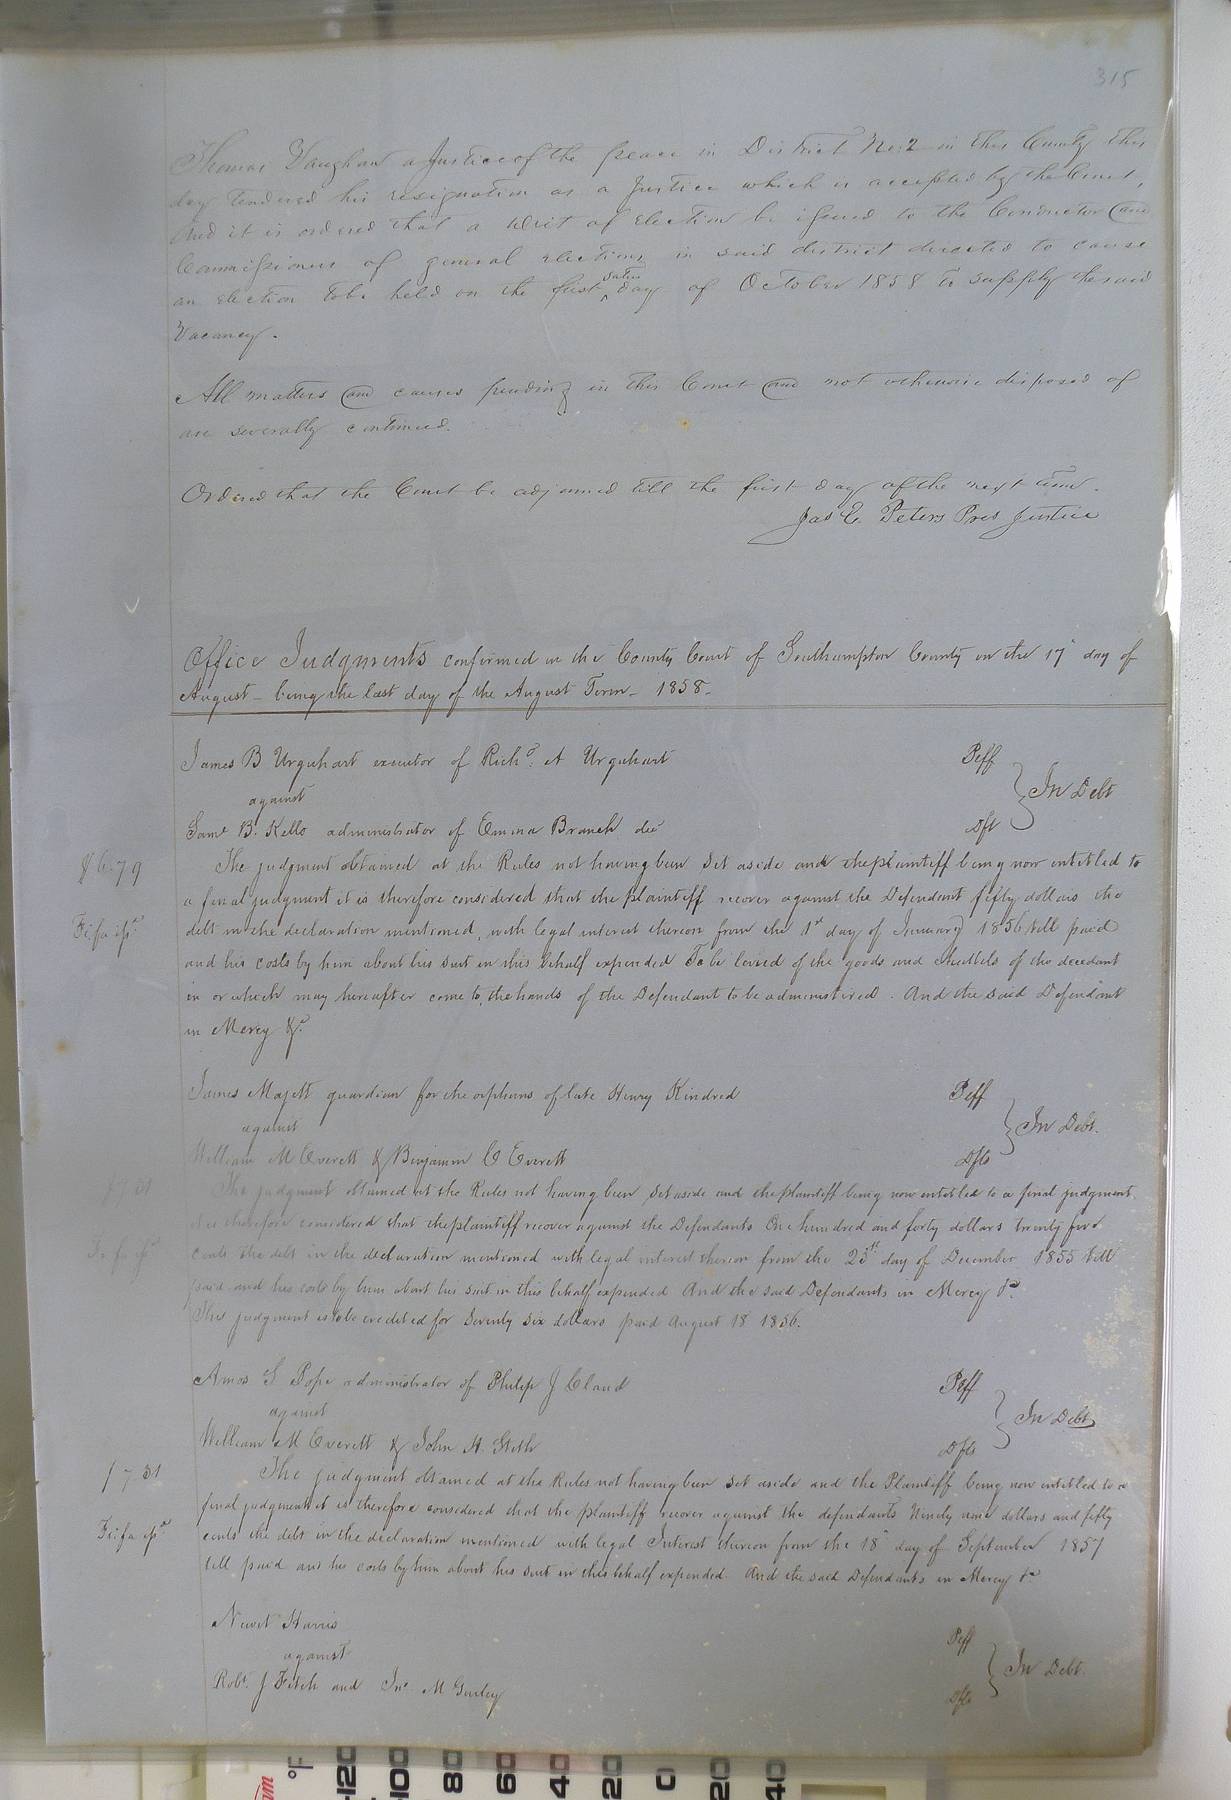 315
Thomas Vaughan a Justice of the peace in District No: 2 in this County this
day tendered his resignation as a Justice which is accepted by the Court,
And it is ordered that a Writ of Election be issued to the Conductor and
Commissioners of general elections in said district directed to cause
an election to be held on the first satur day of October 1858 to supply the said
Vacancy.
All matters and causes pending in this Court and not otherwise disposed of
are severally continued.
Ordered that the Court be adjourned till the first day of the next term.
Jas E. Peters Pres Justice
Office Judgments confirmed in the County Court of Southampton County on the 17 day of
August - being the last day of the August Term - 1858.
James B Urquhart executor of Richd. A Urquhart Plff
against
In Debt
Saml B. Kello administrator of Emma Branch decd Dft
$6.79
The judgment obtained at the Rules not having been set aside and the plaintiff being now entitled to
a final judgment it is therefore considered that the plaintiff recover against the Defendant fifty dollars the
Fi fa
debt in the declaration mentioned, with legal interest thereon from the 1st day of January 1856 till paid
and his costs by him about his suit in this behalf expended To be levied of the goods and chattels of the decedant
in or which may hereafter come to the hands of the Defendant to be administered. And the said Defendant
in Mercy &c
James Majett guardian for the orphans of late Henry Kindred Plff
against
In Debt.
William M Everett & Benjamin C Everett Dfts
$7.31
The judgment obtained at the Rules not having been set aside and the plaintiff being now entitled to a final judgment
it is therefore considered that the plaintiff recover against the Defendants One hundred and forty dollars twenty five
Fi fa
cents the debt in the declaration mentioned with legal interest thereon from the 25 day of December 1855 till
paid and his costs by him about his suit in this behalf expended And the said Defendants in Mercy &c
This judgment is to be credited for Seventy six dollars paid August 18 1856.
Amos S Pope administrator of Philip J Claud Plff
against
In Debt
William M Everett & John H. Stith Dfts
The judgment obtained at the Rules not having been set aside and the Plaintiff being now entitled to a
7.31
final judgment it is therefore considered that the plaintiff recover against the defendants Ninety nine dollars and fifty
Fi fa
cents the debt in the declaration mentioned with legal Interest thereon from the 18 day of September 1857
till paid and his costs by him about his suit in this behalf expended. And the said Defendants in Mercy &c
Newit Harris Plff
against
In Debt.
Robt. J Fitch and Jno. M Gurley Dfts
°F
120
100
80
60
40
20
0
20
40